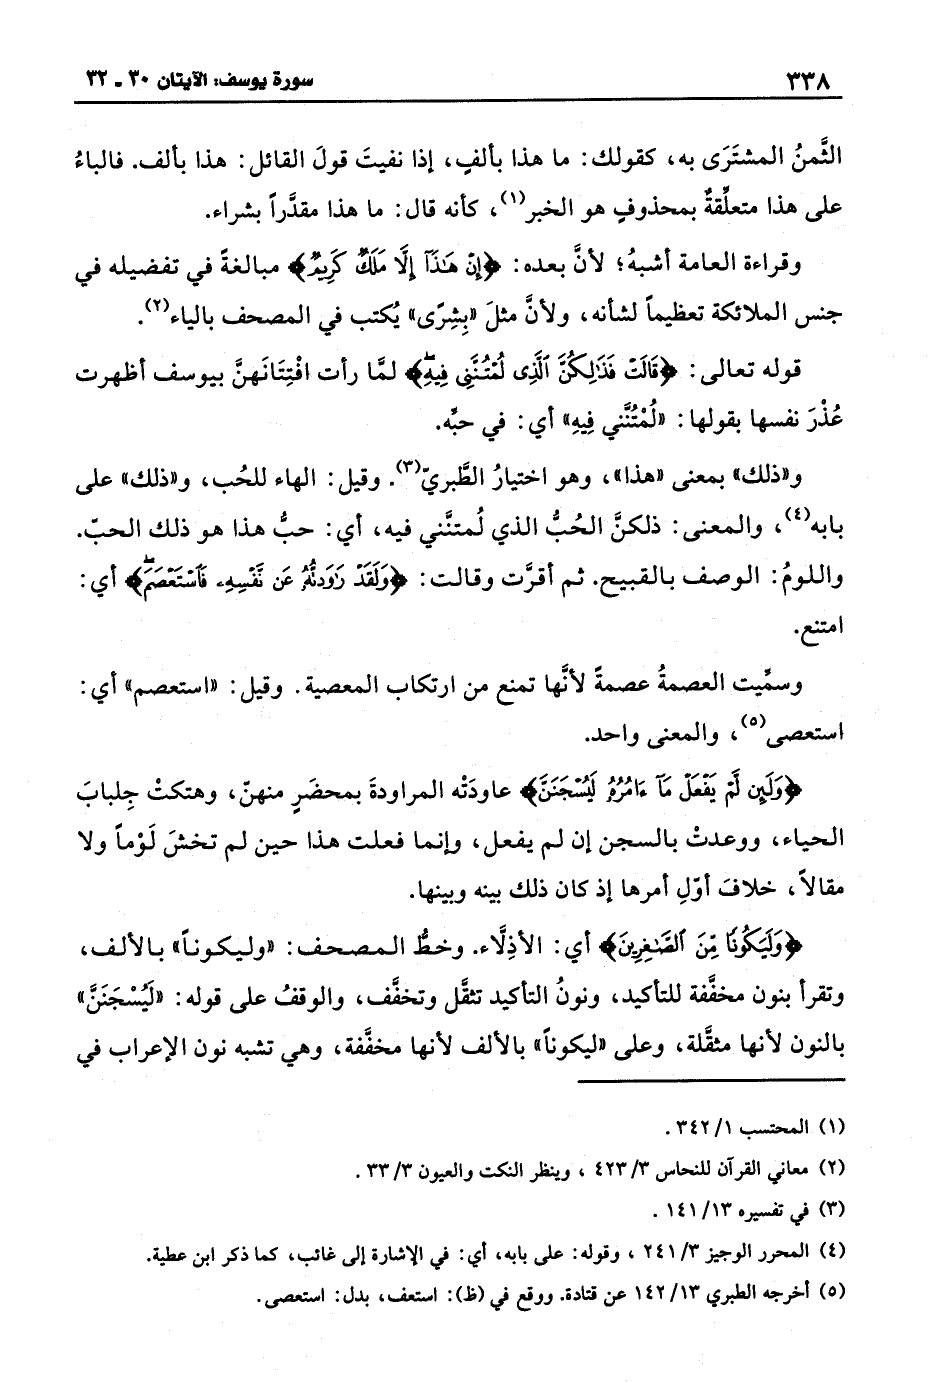 ٣٣٨
سورة يوسف: الآيتان ٣٠ - ٣٢
الثَّمنُ المشتَرَى به، كقولك: ما هذا بألفٍ، إذا نفيتَ قولَ القائل: هذا بألف. فالباءُ
على هذا متعلِّقةٌ بمحذوفٍ هو الخبر(١)، كأنه قال: ما هذا مقدَّراً بشراء.
وقراءة العامة أشبهُ؛ لأنَّ بعده: ﴿إِنْ هَٰذَآ إِلَّا مَلَكٌ كَرِيمٌ﴾ مبالغةً في تفضيله في
جنس الملائكة تعظيماً لشأنه، ولأنَّ مثلَ «بِشِرًى» يُكتب في المصحف بالياء(٢).
قوله تعالى: ﴿قَالَتْ فَذَٰلِكُنَّ ٱلَّذِى لُمْتُنَّنِى فِيهِۖ﴾ لمَّا رأت افْتِتَانَهنَّ بيوسف أظهرت
عُذْرَ نفسها بقولها: «لُمْتُنَّني فِيهِ» أي: في حبِّه.
و«ذلك» بمعنى «هذا»، وهو اختيارُ الطَّبريّ(٣). وقيل: الهاء للحُب، و«ذلك» على
بابه(٤)، والمعنى: ذلكنَّ الحُبُّ الذي لُمتنَّني فيه، أي: حبُّ هذا هو ذلك الحبّ.
واللومُ: الوصف بالقبيح. ثم أقرَّت وقالت: ﴿وَلَقَدْ رَٰوَدتُّهُۥ عَن نَّفْسِهِۦ فَٱسْتَعْصَمَۖ﴾ أي:
امتنع.
وسمِّيت العصمةُ عصمةً لأنَّها تمنع من ارتكاب المعصية. وقيل: «استعصم» أي:
استعصى(٥)، والمعنى واحد.
﴿وَلَئِن لَّمْ يَفْعَلْ مَآ ءَامُرُهُۥ لَيُسْجَنَنَّ﴾ عاودَتْه المراودةَ بمحضَرٍ منهنّ، وهتكتْ جِلبابَ
الحياء، ووعدتْ بالسجن إن لم يفعل، وإنما فعلت هذا حين لم تخشَ لَوْماً ولا
مقالاً، خلافَ أوّلِ أمرها إذ كان ذلك بينه وبينها.
﴿وَلَيَكُونًا مِّنَ ٱلصَّٰغِرِينَ﴾ أي: الأذِلَّاء. وخطُّ المصحف: «وليكوناً» بالألف،
وتقرأ بنون مخفَّفة للتأكيد، ونونُ التأكيد تثقَّل وتخفَّف، والوقفُ على قوله: «لَيُسْجَنَنَّ»
بالنون لأنها مثقَّلة، وعلى «ليكوناً» بالألف لأنها مخففَّة، وهي تشبه نون الإعراب في
(١) المحتسب ٣٤٢/١ .
(٢) معاني القرآن للنحاس ٤٢٣/٣ ، وينظر النكت والعيون ٣٣/٣ .
(٣) في تفسيره ١٤١/١٣ .
(٤) المحرر الوجيز ٢٤١/٣ ، وقوله: على بابه، أي: في الإشارة إلى غائب، كما ذكر ابن عطية.
(٥) أخرجه الطبري ١٤٢/١٣ عن قتادة. ووقع في (ظ): استعف، بدل: استعصى.